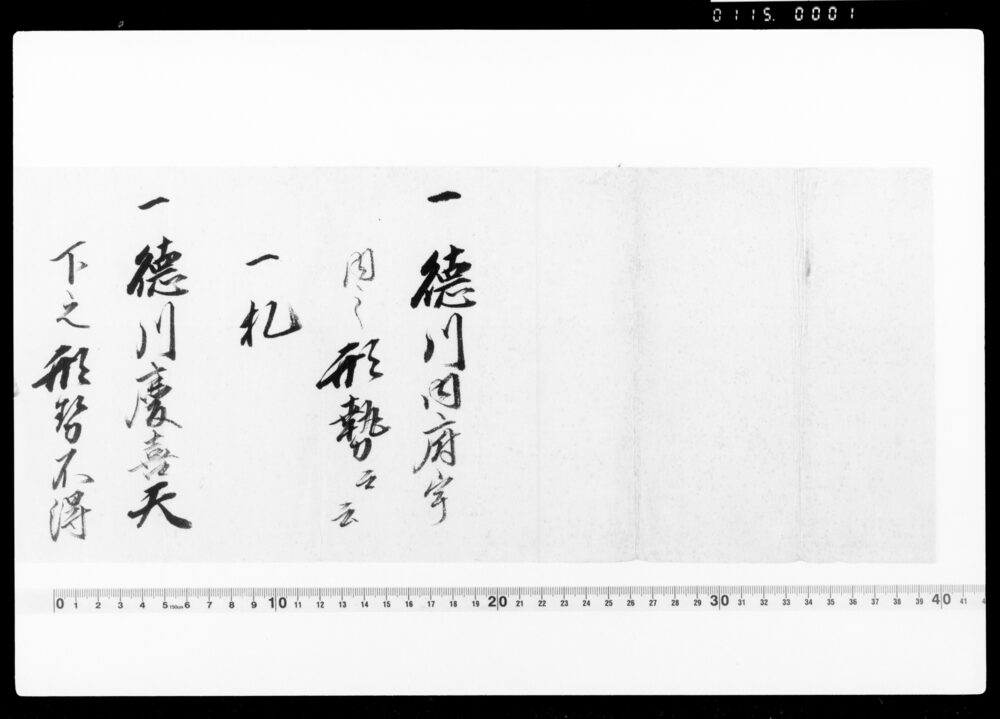 0115. 0001
一 徳川内府宇
内之形勢云云
一札
一 徳川慶喜天
下之形勢不得
0 1 2 3 4 5 150cm 6 7 8 9 10 11 12 13 14 15 16 17 18 19 20 21 22 23 24 25 26 27 28 29 30 31 32 33 34 35 36 37 38 39 40 41